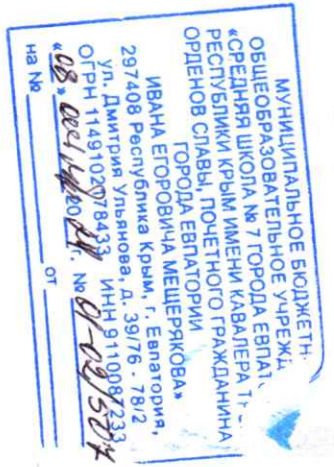 МУНИЦИПАЛЬНОЕ БЮДЖЕТН
ОБЩЕОБРАЗОВАТЕЛЬНОЕ УЧРЕЖД
«СРЕДНЯЯ ШКОЛА № 7 ГОРОДА ЕВПАТ
РЕСПУБЛИКИ КРЫМ ИМЕНИ КАВАЛЕРА
ОРДЕНОВ СЛАВЫ, ПОЧЕТНОГО ГРАЖДАНИНА
ГОРОДА ЕВПАТОРИИ
ИВАНА ЕГОРОВИЧА МЕЩЕРЯКОВА»
297408 Республика Крым, г. Евпатория,
ул. Дмитрия Ульянова, д. 39/76 - 78/2
ОГРН 1149102078433 ИНН 9110087233
«08» 20 24 г. № 01-09/504
на № от